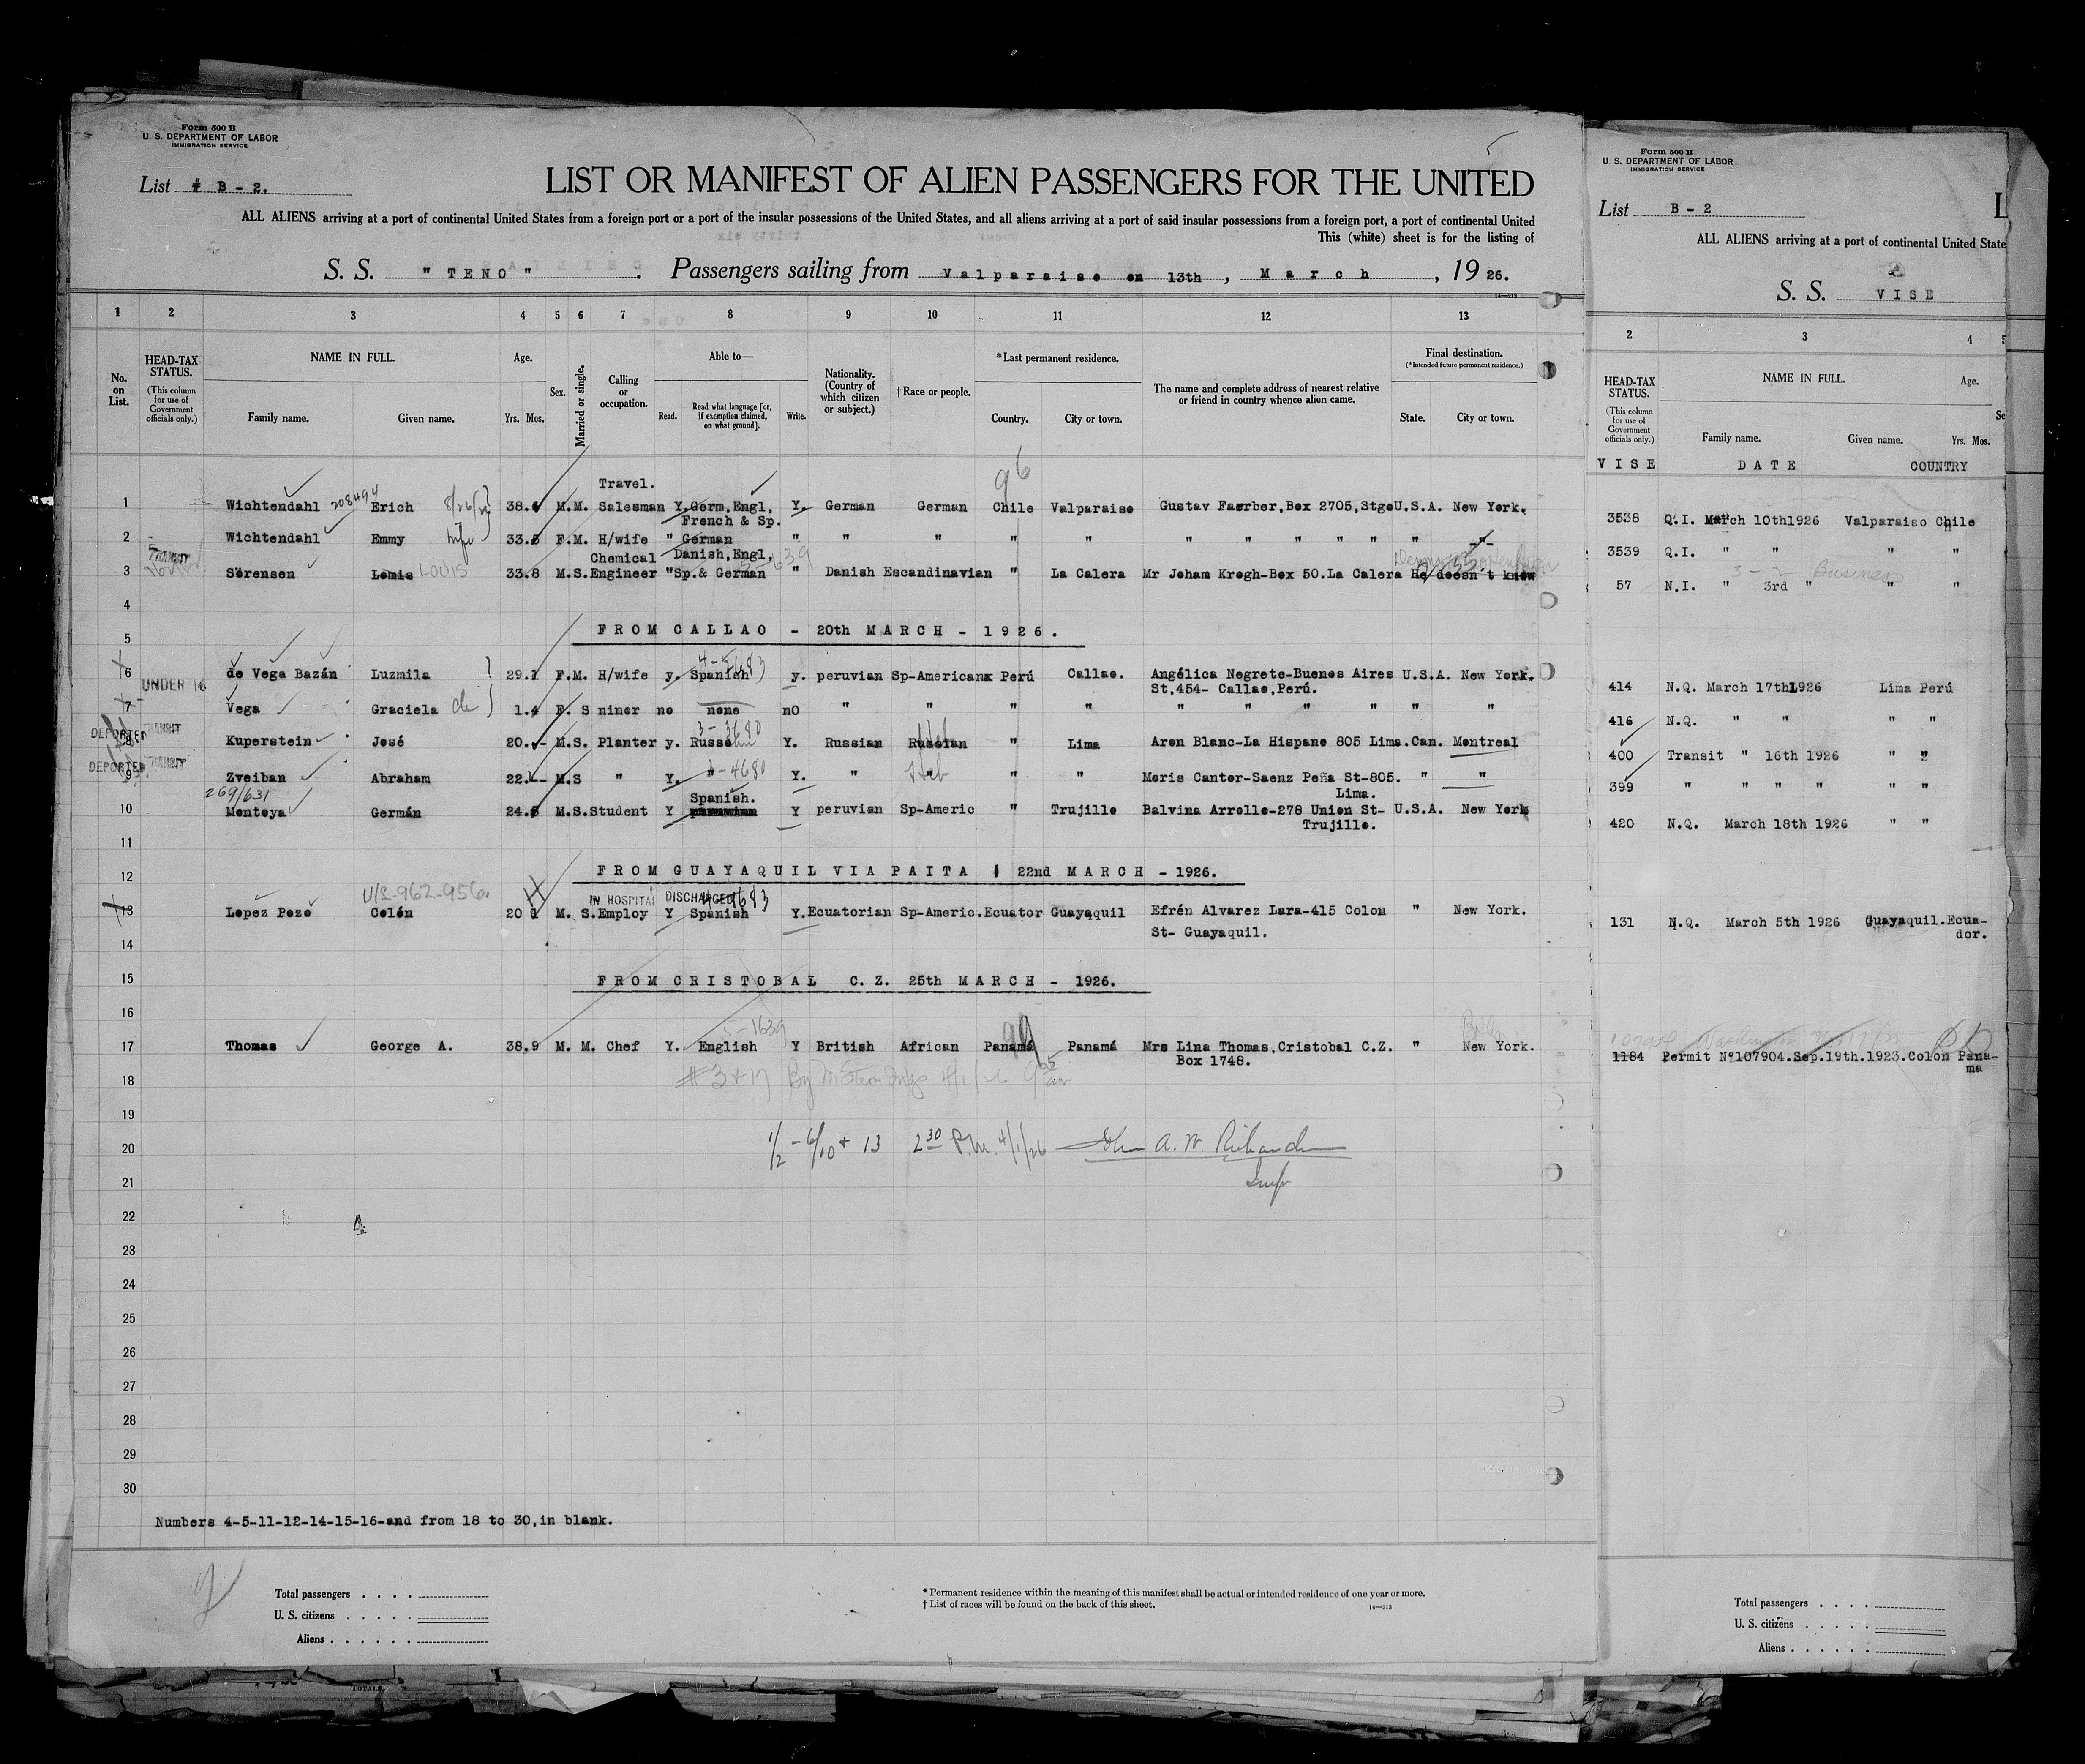 Form 500 B
U. S. DEPARTMENT OF LABOR
IMMIGRATION SERVICE
List # B - 2.
LIST OR MANIFEST OF ALIEN PASSENGERS FOR THE UNITED
ALL ALIENS arriving at a port of continental United States from a foreign port or a port of the insular possessions of the United States, and all aliens arriving at a port of said insular possessions from a foreign port, a port of continental United
This (white) sheet is for the listing of
S. S. " TENO " . Passengers sailing from Valparaiso on 13th , March , 19 26.
1 2 3 4 5 6 7 8 9 10 11 12 13
No. on List.
HEAD-TAX STATUS.
(This column for use of Government officials only.)
NAME IN FULL.
Family name. Given name.
Age.
Yrs. Mos.
Sex.
Married or single.
Calling or occupation.
Able to—
Read. Read what language [or, if exemption claimed, on what ground]. Write.
Nationality. (Country of which citizen or subject.)
† Race or people.
* Last permanent residence.
Country. City or town.
The name and complete address of nearest relative or friend in country whence alien came.
Final destination.
(* Intended future permanent residence.)
State. City or town.
96
Travel.
1 Wichtendahl 208494 Erich 38. M. M. Salesman Y. Germ,Engl, Y. German German Chile Valparaiso Gustav Faerber,Box 2705,Stgo U.S.A. New York.
French & Sp.
2 Wichtendahl Emmy wife 33. F. M. H/wife " German " " " " " " " " " " " " -"-
TRANSIT
Chemical Danish,Engl,
3 Sörensen Lomis LOUIS 33.8 M. S. Engineer " Sp.& German " Danish Escandinavian " La Calera Mr Joham Krogh-Box 50.La Calera He doesn't know
4
5 FROM CALLAO - 20th MARCH - 1926.
6 de Vega Bazán Luzmila 29.1 F. M. H/wife y. Spanish y. peruvian Sp-American Perú Callao. Angélica Negrete-Buenos Aires U.S.A. New York.
UNDER 16
St,454- Callao,Perú.
7 Vega Graciela 1.4 F. S niner no none nO " " " " " " " " " " "
DEPORTED TRANSIT
3-3680
8 Kuperstein José 20.- M. S. Planter y. Russ Y. Russian Russian " Lima Aron Blanc-La Hispano 805 Lima. Can. Montreal
DEPORTED TRANSIT
3-4680
9 Zveiban Abraham 22.- M. S " Y. " Y. " Heb " " Moris Canter-Saenz Peña St-805. " "
Lima.
269/631
Spanish.
10 Monteya Germán 24. M. S. Student Y Y peruvian Sp-Americ " Trujillo Balvina Arrollo-278 Union St- U.S.A. New York
Trujillo.
11
12 FROM GUAYAQUIL VIA PAITA 22nd MARCH - 1926.
IN HOSPITAL DISCHARGED
13 Lopez Pozo Colón 20 1 M. S. Employ Y Spanish Y. Ecuatorian Sp-Americ. Ecuator Guayaquil Efrén Alvarez Lara-415 Colon " New York.
St- Guayaquil.
14
15 FROM CRISTOBAL C.Z. 25th MARCH - 1926.
16
5-1639
17 Thomas George A. 38.9 M. M. Chef Y. English Y British African Panamá Panamá Mrs Lina Thomas,Cristobal C.Z. " New York.
Box 1748.
18
19
20 1/2 - 6/10 + 13 2 30 P.M. 4/1/26 John A. W.
Insp
21
22
23
24
25
26
27
28
29
30
Numbers 4-5-11-12-14-15-16-and from 18 to 30,in blank.
Total passengers . . . .
U. S. citizens . . . . .
Aliens . . . . . .
* Permanent residence within the meaning of this manifest shall be actual or intended residence of one year or more.
† List of races will be found on the back of this sheet.
14—213
Form 500 B
U. S. DEPARTMENT OF LABOR
IMMIGRATION SERVICE
List B - 2
L
ALL ALIENS arriving at a port of continental United State
S. S. VISE
2 3 4 5
HEAD-TAX STATUS.
(This column for use of Government officials only.)
NAME IN FULL.
Family name. Given name.
Age.
Yrs. Mos.
Se
VISE DATE COUNTRY
3538 Q.I. March 10th1926 Valparaiso Chile
3539 Q.I. " " " "
Business
57 N.I. " 3rd " " "
414 N.Q. March 17th1926 Lima Perú
416 N.Q. " " " "
400 Transit " 16th 1926 " "
399 " " " " " "
420 N.Q. March 18th 1926 " "
131 N.Q. March 5th 1926 Guayaquil.Ecua-
dor.
1184 Permit Nº107904.Sep.19th.1923.Colon Pana-
ma
Total passengers . . . .
U. S. citizens . . . . .
Aliens . . . . . .